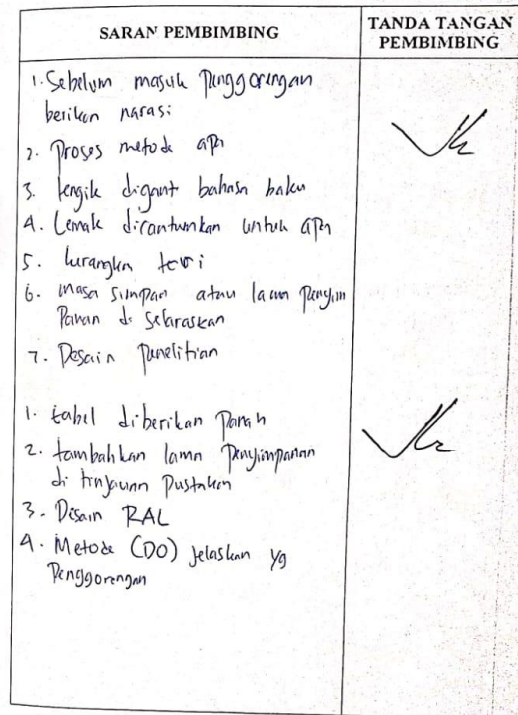 SARAN PEMBIMBING
TANDA TANGAN
PEMBIMBING
1. Sebelum masuk Penggorengan
berikan narasi
2. Proses metode apa
3. tengik digant bahasa baku
4. Lemak dicantumkan untuk apa
5. kurangkn teori
6. masa simpan atau lama Penyim
Panan di selaraskan
7. Desain Penelitian
1. tabel diberikan Panah
2. tambahkan lama Penyimpanan
di tinjauan Pustaken
3. Disain RAL
4. Metode (DO) jelaskan yg
Penggorengan